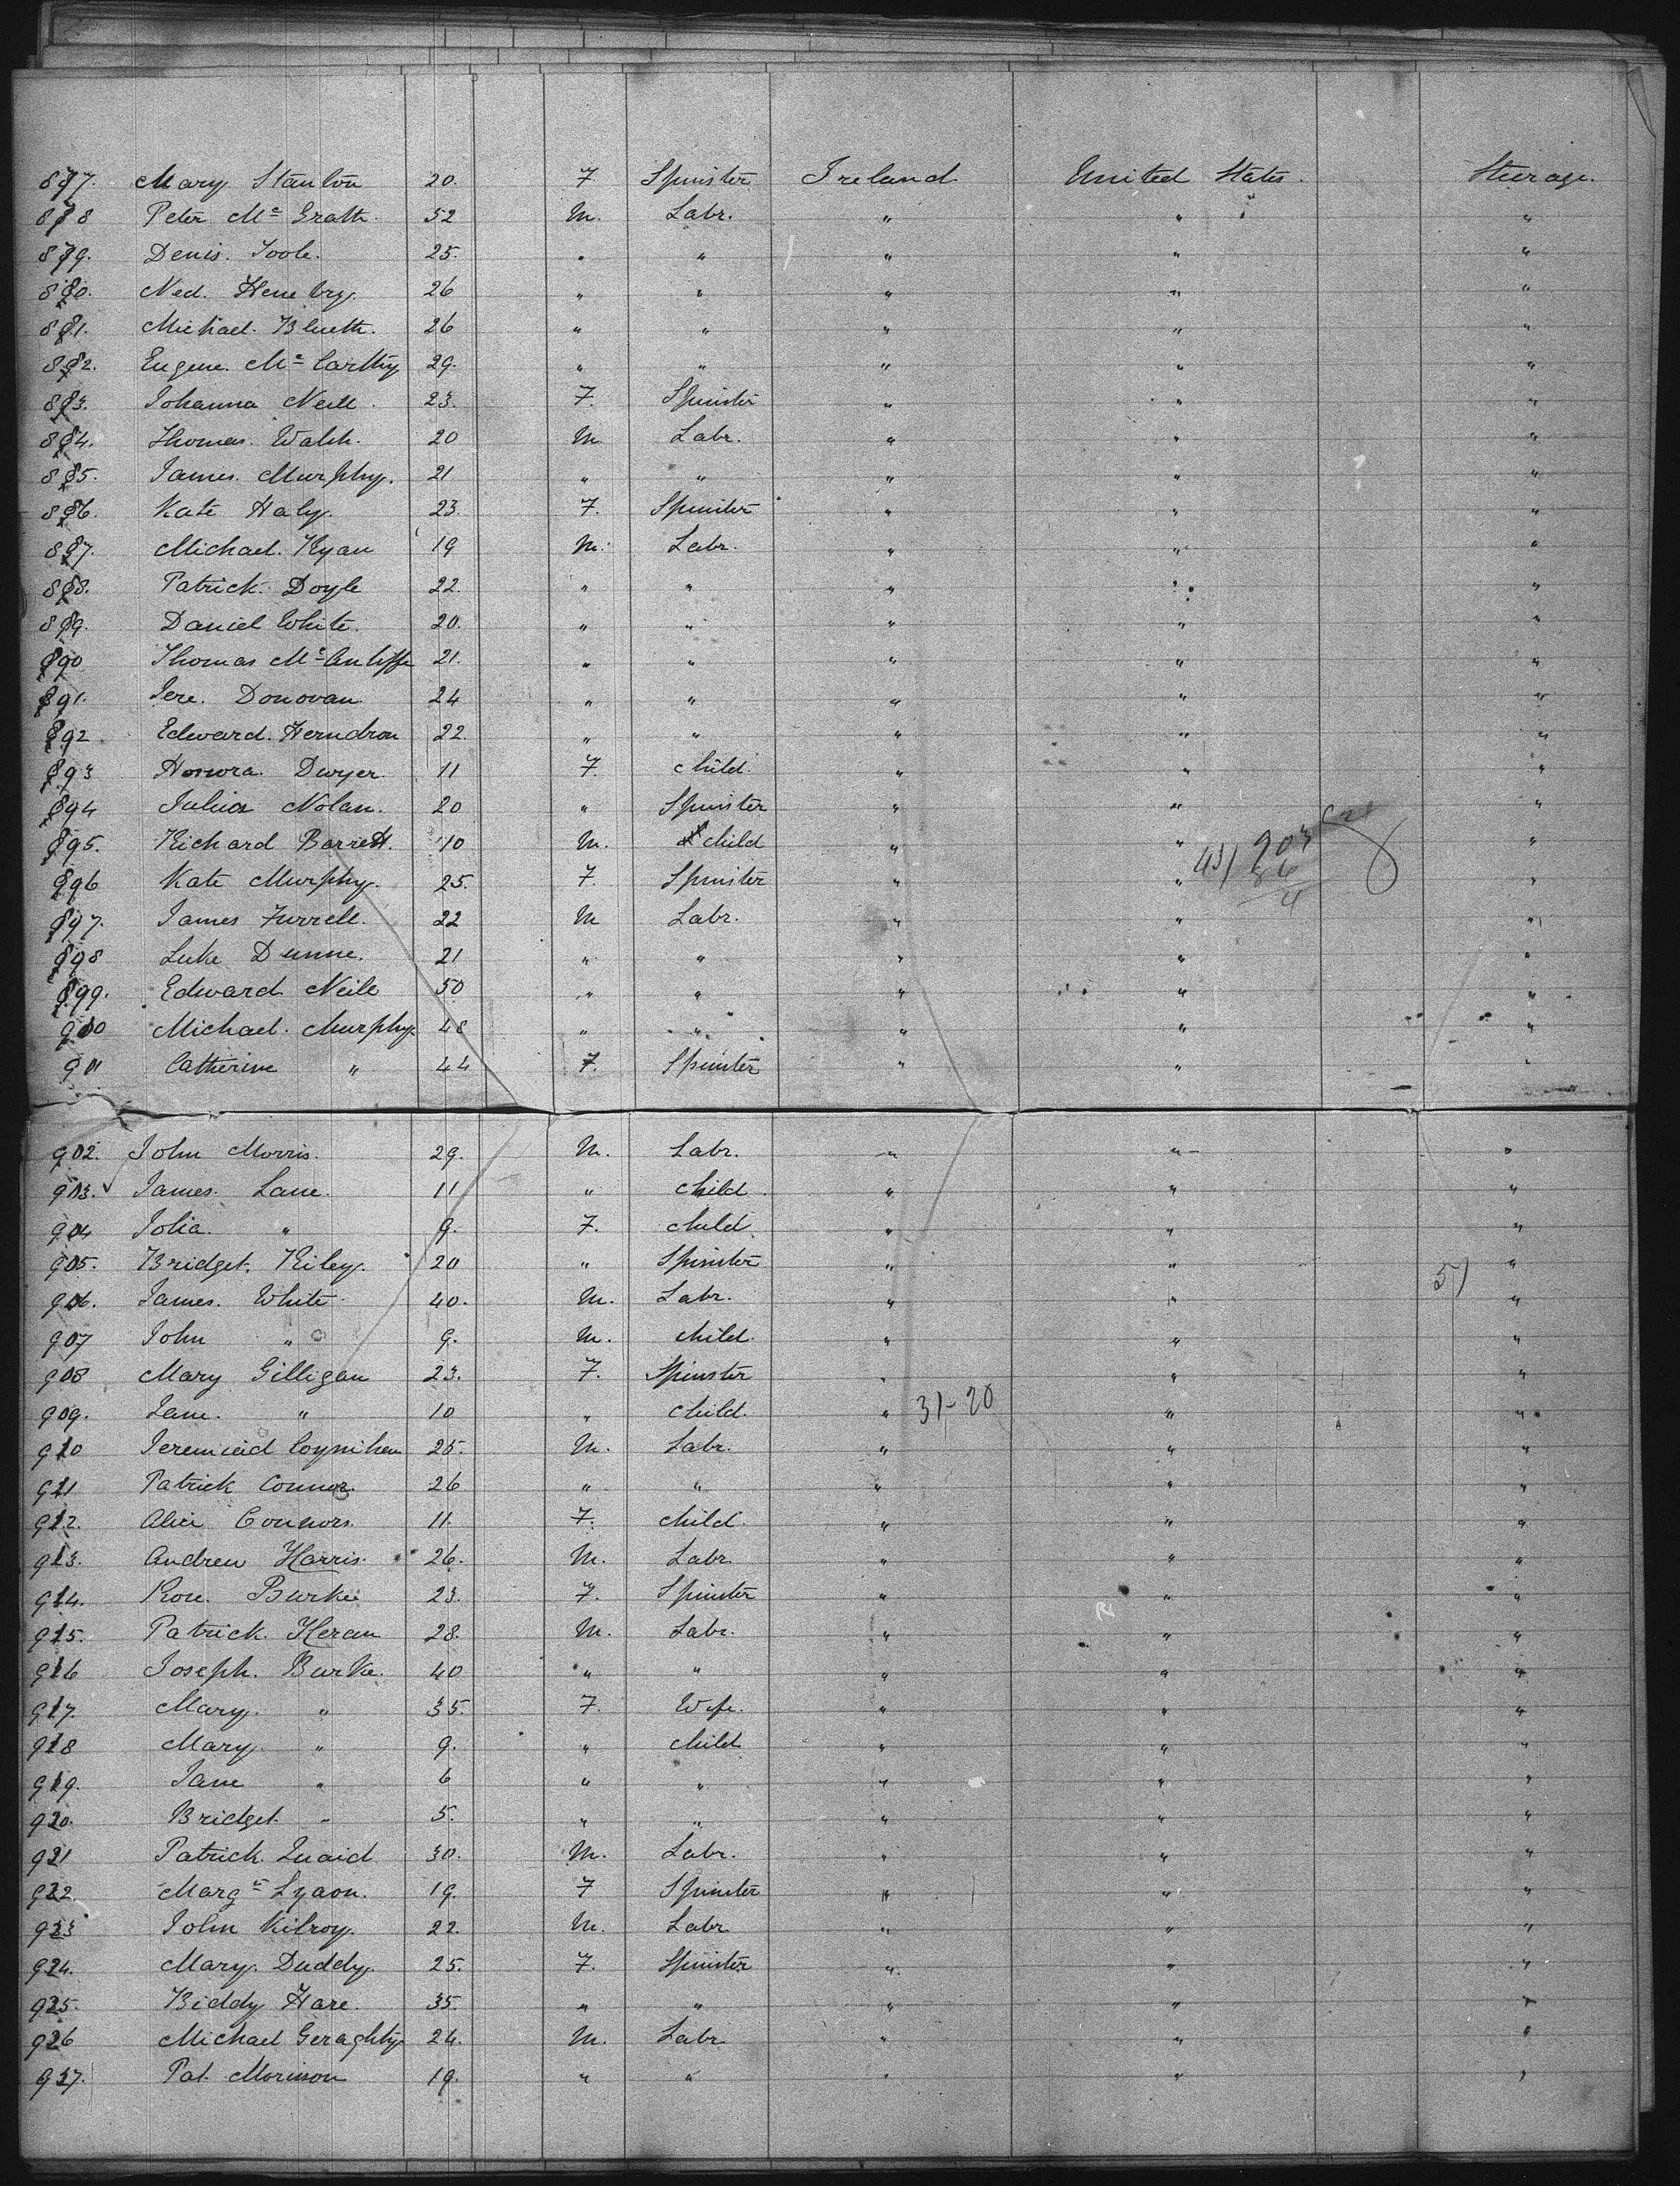 877. Mary Stanton 20. F. Spinster Ireland United States. Steerage.
878 Peter Mc Grath 52 M. Labr. " " "
879. Denis. Toole. 25. " " " " "
880. Ned. Henebry. 26 " " " " "
881. Michael. Bluett. 26 " " " " "
882. Eugene. Mc Carthy 29. " " " " "
883. Johanna Neill. 23. F. Spinster " " "
884. Thomas. Walsh. 20 M Labr. " " "
885. James. Murphy. 21 " " " " "
886. Kate Haly. 23. F. Spinster " " "
887. Michael. Ryan 19 M. Labr. " " "
888. Patrick. Doyle 22. " " " " "
889. Daniel White. 20. " " " " "
890 Thomas Mc Auliffe 21. " " " " "
891. Jere. Donovan. 24 " " " " "
892 Edward. Herndron 22. " " " " "
893 Honora. Dwyer. 11 F. child. " " "
894 Julia Nolan. 20 " Spinster " " "
895. Richard Barrett. 10 M. child " " "
896 Kate Murphy. 25. F. Spinster " " "
897. James Furrell. 22 M Labr. " " "
898 Luke Dunne. 21 " " " " "
899. Edward Neile 50 " " " " "
900 Michael. Murphy. 48 " " " " "
901 Catherine " 44 F. Spinster " " "
902. John Morris. 29. M. Labr. " " "
903. James. Lane. 11 " child " " "
904 Jolia. " 9. F. child. " " "
905. Bridget. Riley. 20 " Spinster " " "
906. James. White 40. M. Labr. " " "
907 John " 9. M. child. " " "
908 Mary Gilligan 23. F. Spinster " " "
909. Jane. " 10 " child. " 31-20 " "
910 Jeremieid Coynihan 25. M. Labr. " " "
911 Patrick Connor. 26 " " " " "
912. Alice Connors. 11. F. child. " " "
913. Andrew Harris. 26. M. Labr. " " "
914. Rose. Burke 23. F. Spinster " " "
915. Patrick. Keran 28. M. Labr. " " "
916 Joseph. Burke. 40 " " " " "
917. Mary. " 35. F. Wife. " " "
918 Mary " 9. " child " " "
919. Jane " 6 " " " " "
920. Bridget. " 5. " " " " "
921 Patrick. Quaid 30. M. Labr. " " "
922. Margt Lyaon. 19. F Spinster " " "
923 John Kilroy. 22. M. Labr " " "
924. Mary. Duddy. 25. F. Spinster " " "
925. Biddy Hare. 35. " " " " "
926 Michael Geraghty 24. M. Labr " " "
927. Pat. Morisson 19. " " " " "